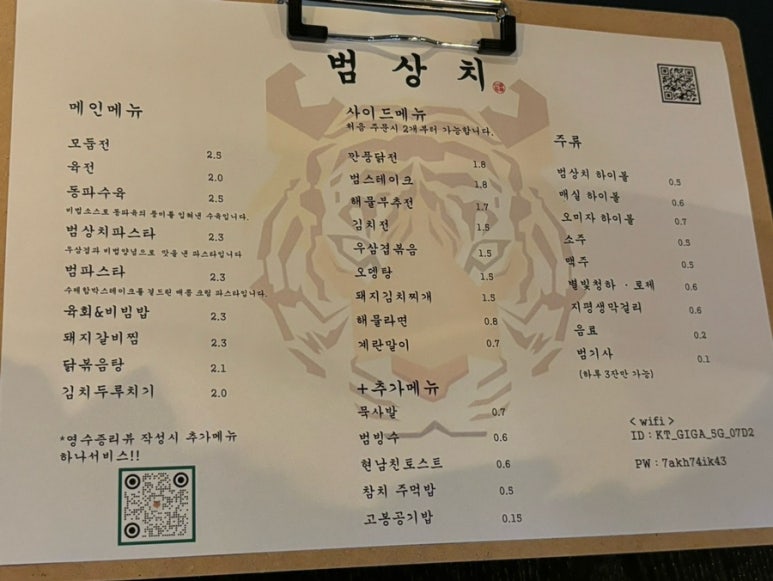 범 상 치
메인메뉴
모둠전 2.5
육전 2.0
동파수육 2.5
비법소스로 동파육의 풍미를 입혀낸 수육입니다.
범상치파스타 2.3
우삼겹과 비법양념으로 맛을 낸 파스타입니다
범파스타 2.3
수제함박스테이크를 곁드린 매콤 크림 파스타입니다.
육회&비빔밥 2.3
돼지갈비찜 2.3
닭볶음탕 2.1
김치두루치기 2.0
*영수증리뷰 작성시 추가메뉴
하나서비스!!
사이드메뉴
처음 주문시 2개부터 가능합니다.
깐풍닭전 1.8
범스테이크 1.8
해물부추전 1.7
김치전 1.5
우삼겹볶음 1.5
오뎅탕 1.5
돼지김치찌개 1.5
해물라면 0.8
계란말이 0.7
+추가메뉴
묵사발 0.7
범빙수 0.6
현남친토스트 0.6
참치 주먹밥 0.5
고봉공기밥 0.15
주류
범상치 하이볼 0.5
매실 하이볼 0.6
오미자 하이볼 0.7
소주 0.5
맥주 0.5
별빛청하 · 로제 0.6
지평생막걸리 0.6
음료 0.2
범기사 0.1
(하루 3잔만 가능)
< wifi >
ID : KT_GIGA_5G_07D2
PW : 7akh74ik43